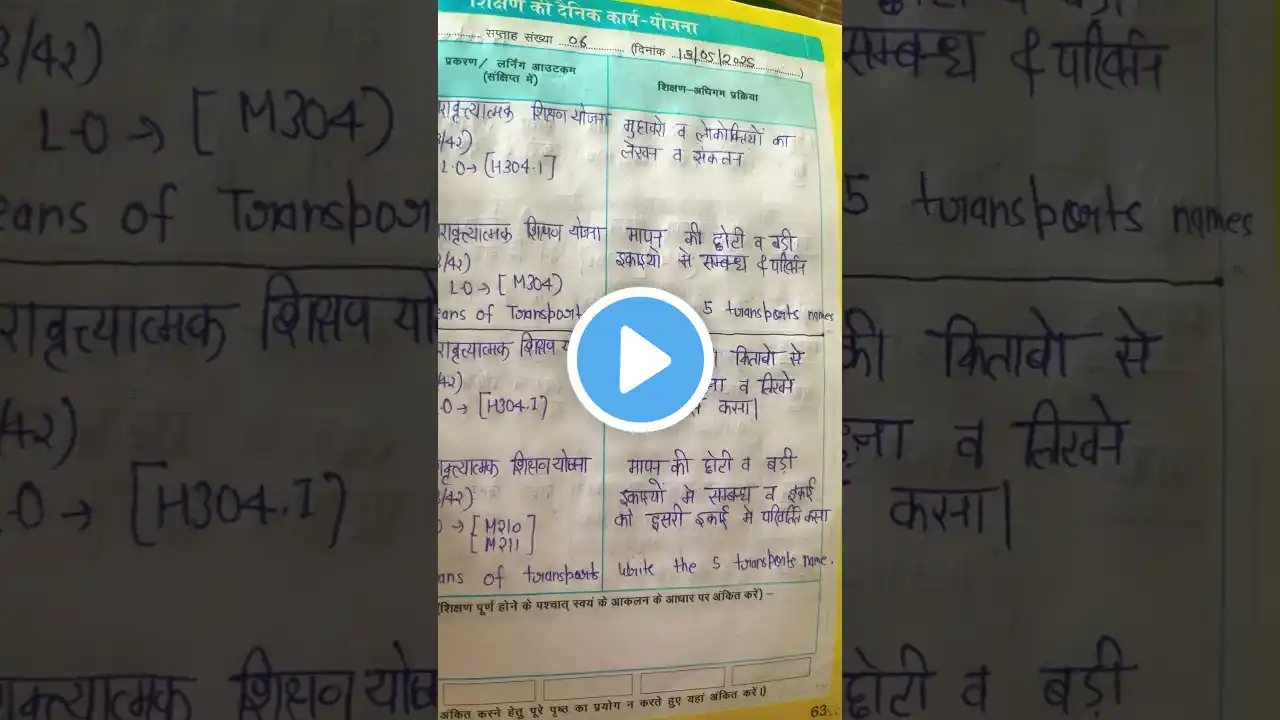 शिक्षण की दैनिक कार्य-योजना
सप्ताह संख्या 06 (दिनांक 13/05/2025)
प्रकरण/ लर्निंग आउटकम
(संक्षिप्त में)
शिक्षण-अधिगम प्रक्रिया
रावृत्त्यात्मक शिक्षण योजना
/42)
L-O→ [H304.1]
मुहावरो व लोकोक्तियों का
लेखन व संकलन
रावृत्त्यात्मक शिक्षण योजना
/42)
L-O→ [M304)
मापन की छोटी व बड़ी
इकाइयो मे सम्बन्ध & परिवर्तन
eans of Transport
5 transports names
रावृत्त्यात्मक शिक्षण य
/42)
-O→ [H304.1)
किताबो से
व लिखने
कसा।
वृत्त्यात्मक शिक्षण योजना
3/42)
→ [M210]
[M211]
मापन की छोटी व बड़ी
इकाइयों मे सम्बन्ध व इकाई
को दूसरी इकाई मे परिवर्तित कसा
ans of transports
Write the 5 transports name.
(शिक्षण पूर्ण होने के पश्चात् स्वयं के आकलन के आधार पर अंकित करें) –
अंकित करने हेतु पूरे पृष्ठ का प्रयोग न करते हुए यहां अंकित करें।)
63